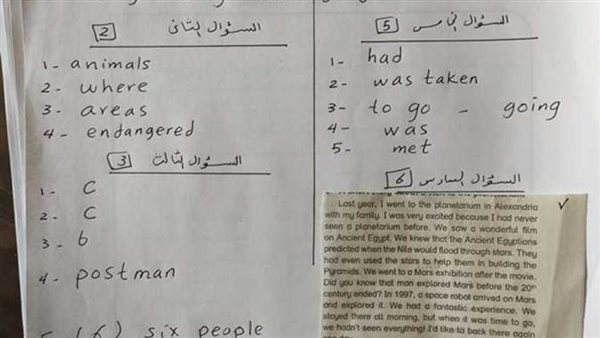 السؤال الثانى 2
1- animals
2- where
3- areas
4- endangered
السؤال الثالث 3
1- C
2- C
3- b
4- postman
(6) six people
السؤال الخامس 5
1- had
2- was taken
3- to go - going
4- was
5- met
السؤال السادس 6
Last year, I went to the planetarium in Alexandria
with my family. I was very excited because I had never
seen a planetarium before. We saw a wonderful film
on Ancient Egypt. We knew that the Ancient Egyptians
predicted when the Nile would flood through stars. They
had even used the stars to help them in building the
Pyramids. We went to a Mars exhibition after the movie.
Did you know that man explored Mars before the 20th
century ended? In 1997, a space robot arrived on Mars
and explored it. We had a fantastic experience. We
stayed there all morning, but when it was time to go,
we hadn't seen everything! I'd like to back there again